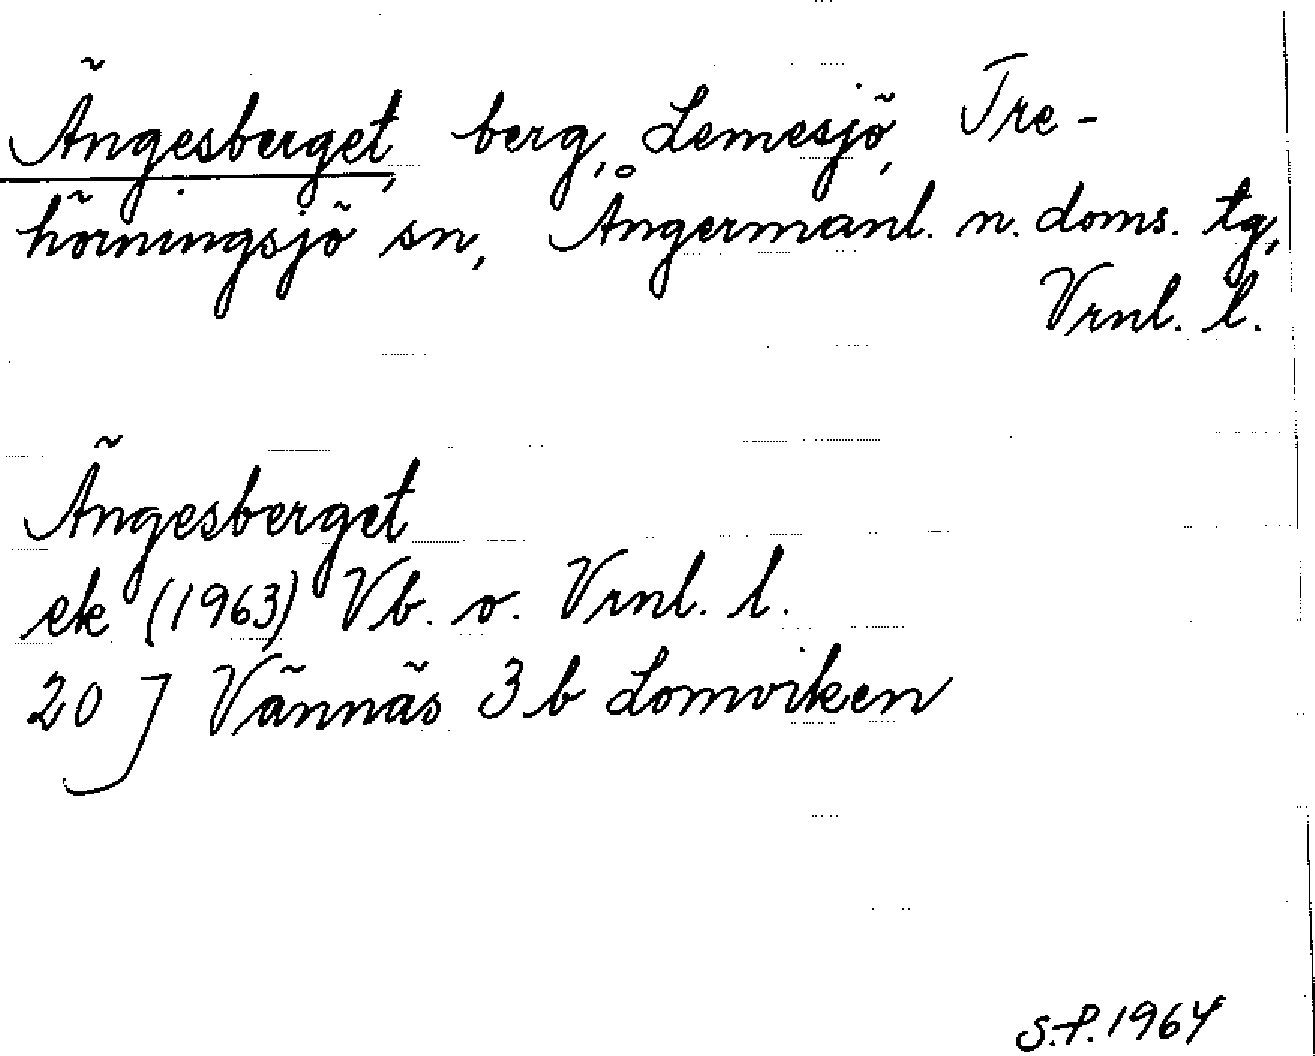 Ängesberget, berg, Lemesjö, Tre-
hörningsjö sn, Ångermanl. n. doms. tg,
Vrnl. l.
Ängesberget
ek (1963) Vb. o. Vrnl. l.
20 J Vännäs 3 b Lomviken
S.P. 1964